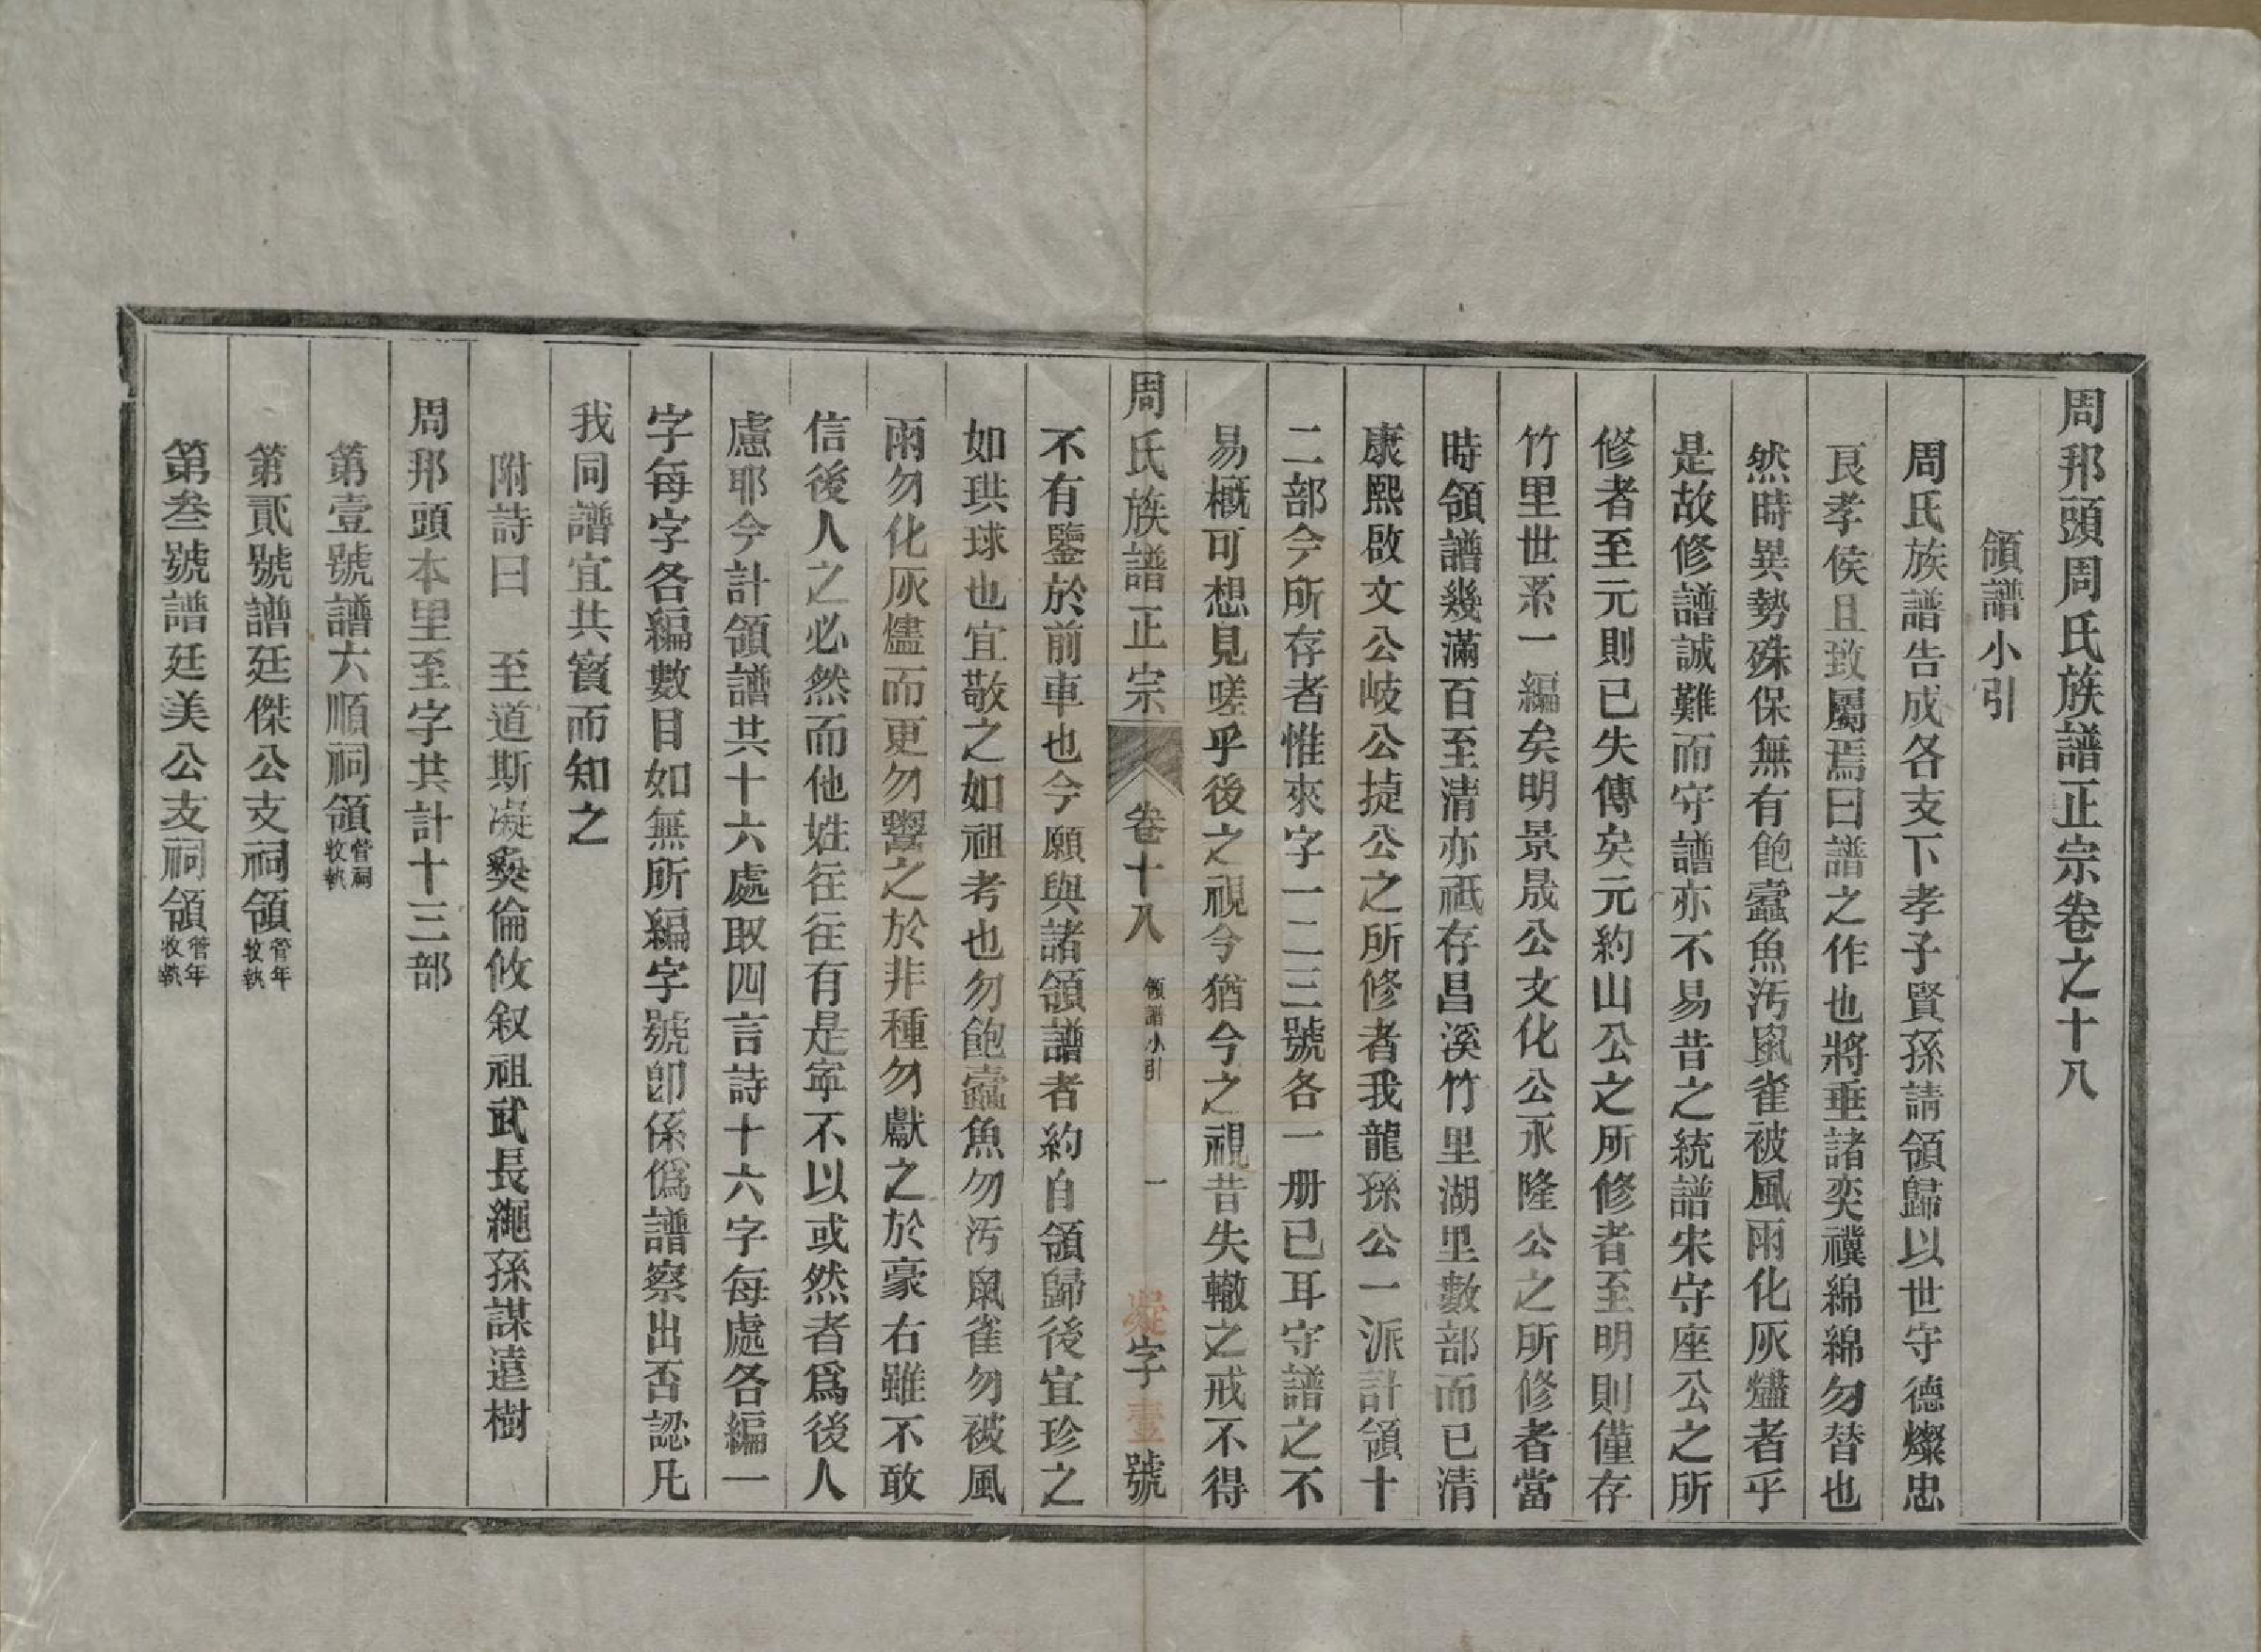 周邦頭周氏族譜正宗卷之十八
領譜小引
周氏族譜告成各支下孝子賢孫請領歸以世守德燦忠
良孝侯且致屬焉曰譜之作也將垂諸奕禩綿綿勿替也
然時異勢殊保無有飽蠹魚汚鼠雀被風雨化灰燼者乎
是故修譜誠難而守譜亦不易昔之統譜宋守座公之所
修者至元則已失傳矣元約山公之所修者至明則僅存
竹里世系一編矣明景晟公文化公永隆公之所修者當
時領譜幾滿百至清亦祇存昌溪竹里湖里數部而已清
康熙啟文公岐公㨗公之所修者我龍孫公一派計領十
二部今所存者惟來字一二三號各一册已耳守譜之不
易概可想見嗟乎後之視今猶今之視昔失轍之戒不得
周氏族譜正宗 卷十八 領譜小引 一 凝字壹號
不有鑒於前車也今願與諸領譜者約自領歸後宜珍之
如珙球也宜敬之如祖考也勿飽蠹魚勿汚鼠雀勿被風
雨勿化灰燼而更勿鬻之於非種勿獻之於豪右雖不敢
信後人之必然而他姓往往有是寧不以或然者爲後人
慮耶今計領譜共十六處取四言詩十六字每處各編一
字每字各編數目如無所編字號卽係僞譜察出否認凡
我同譜宜共寳而知之
附詩曰 至道斯凝彜倫攸叙祖武長繩孫謀遠樹
周邦頭本里至字共計十三部
第壹號譜六順祠領管祠收執
第貳號譜廷傑公支祠領管年收執
第叁號譜廷美公支祠領管年收執